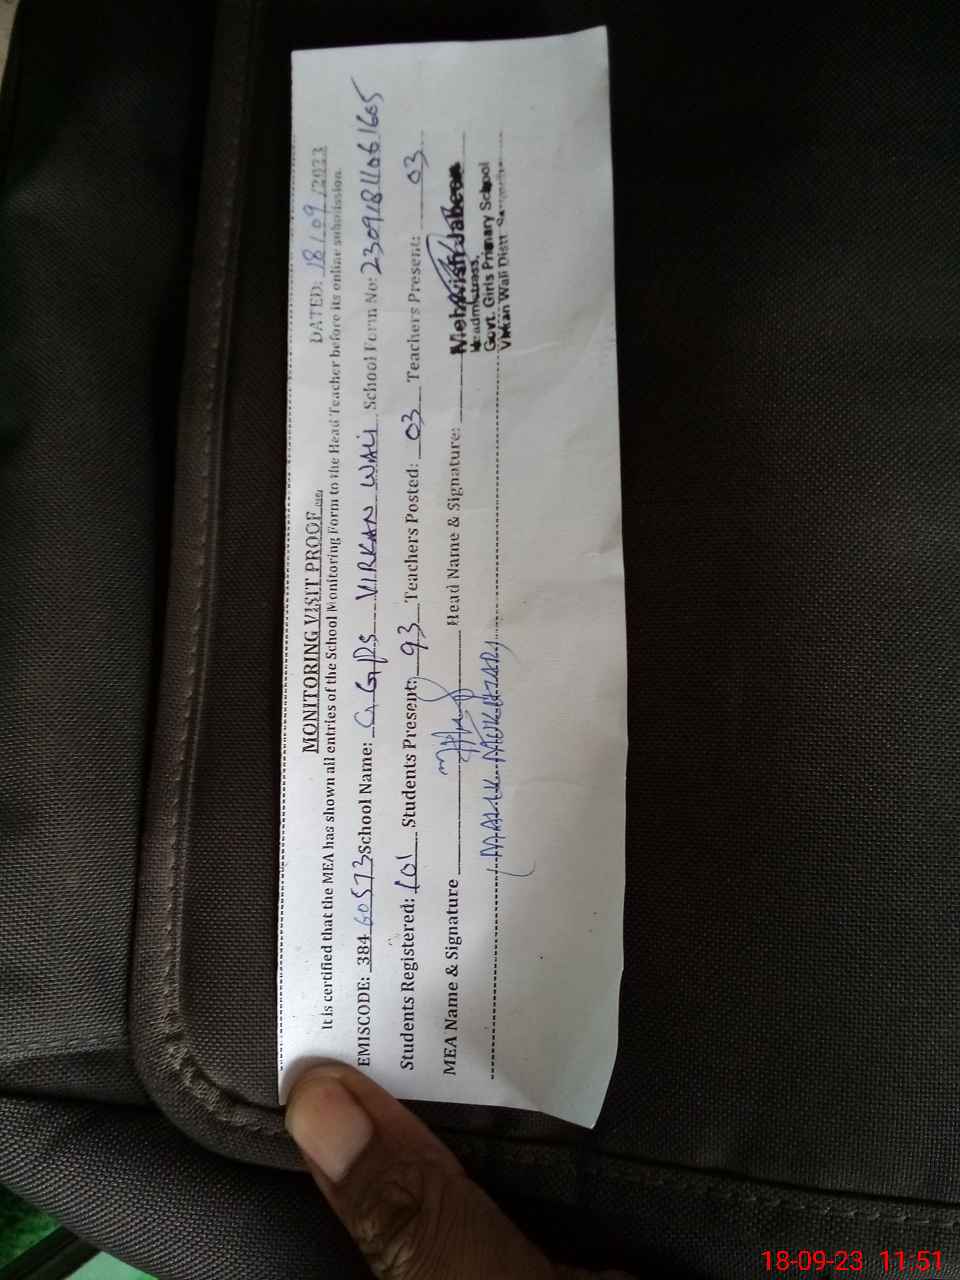 MONITORING VISIT PROOF
DATED: 18/09/2023
It is certified that the MEA has shown all entries of the School Monitoring Form to the Head Teacher before its online submission.
EMISCODE: 38460573 School Name: GGPS VIRKAN WALI School Form No: 23091811061605
Students Registered: 101 Students Present: 93 Teachers Posted: 03 Teachers Present: 03
MEA Name & Signature Head Name & Signature: Mehwish Jabeen
Headmistress,
Govt. Girls Primary School
Virkan Wali Distt.
18-09-23 11:51